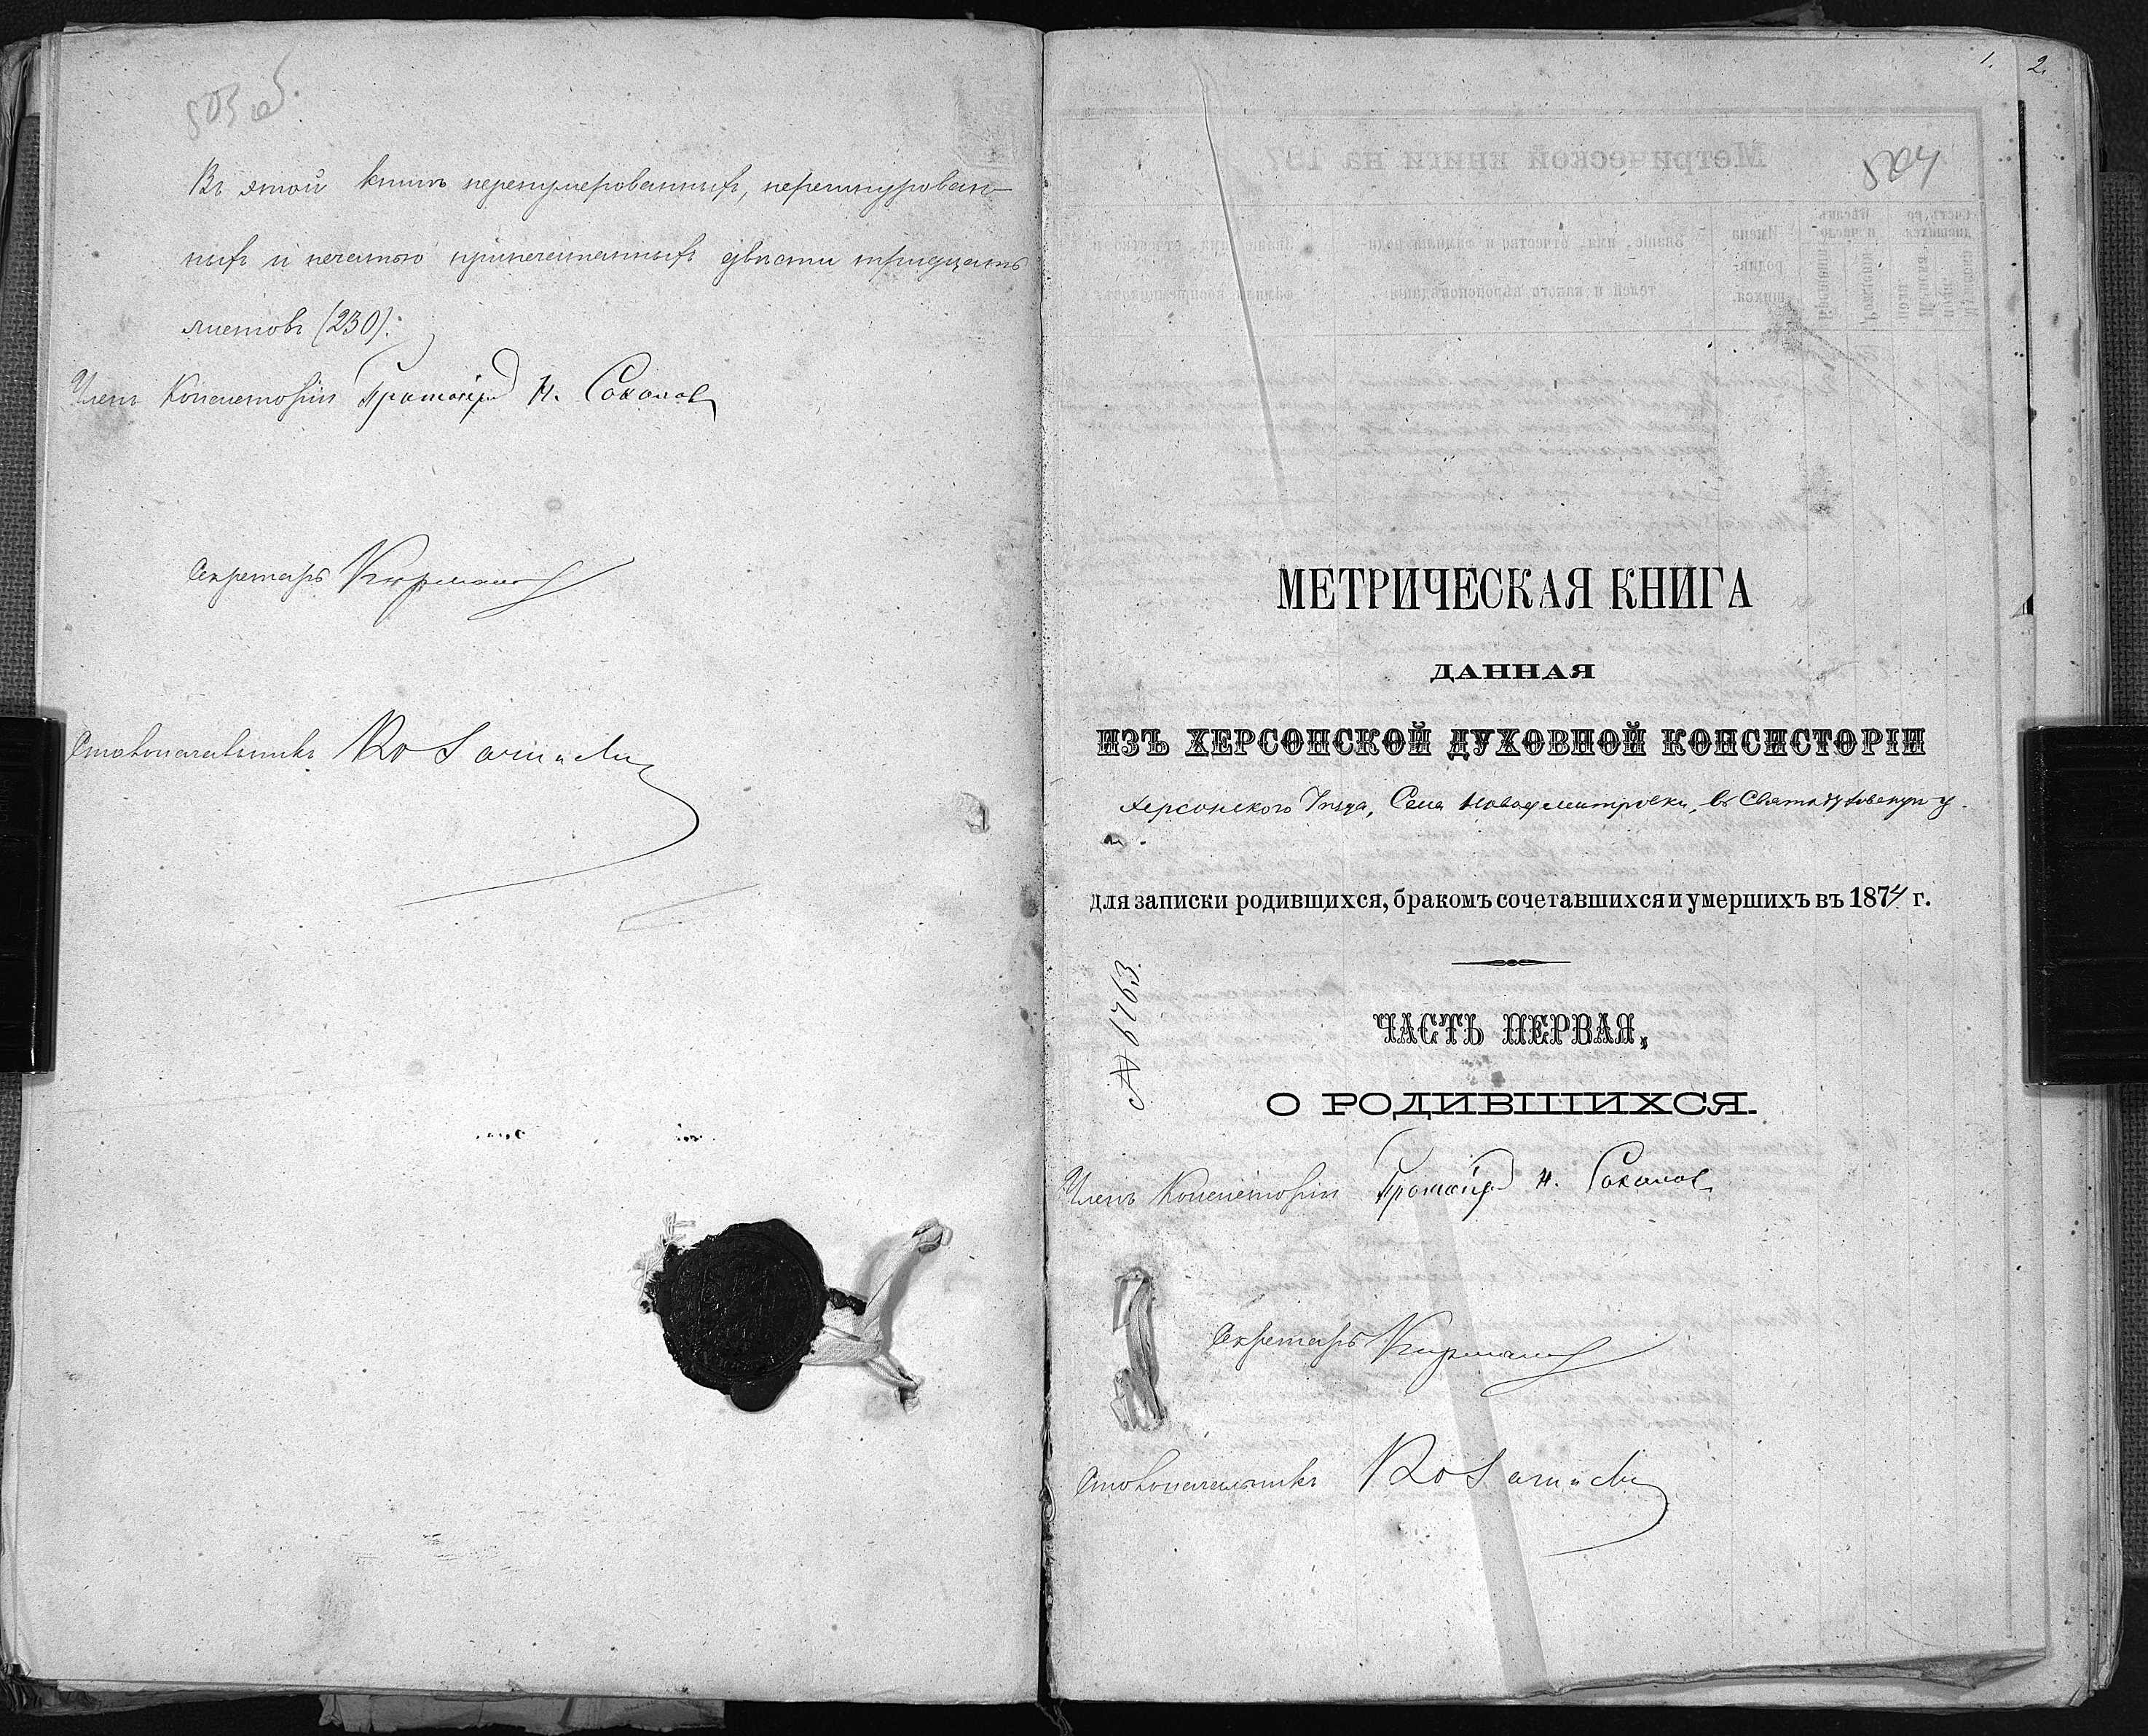 503 об.
Въ этой книгѣ перенумерованныхъ, перешнурован-
ныхъ и печатью припечатанныхъ двѣсти тридцать
листовъ (230).
Членъ Консисторіи Протоіерей Н. Соколовъ
Секретарь
Столоначальникъ
1. 2.
504
МЕТРИЧЕСКАЯ КНИГА
ДАННАЯ
ИЗЪ ХЕРСОНСКОЙ ДУХОВНОЙ КОНСИСТОРІИ
Херсонского Уѣзда, Села Новодмитровки, въ Святодуховскую ц.
для записки родившихся, бракомъ сочетавшихся и умершихъ въ 1874 г.
№ 6763
ЧАСТЬ ПЕРВАЯ,
О РОДИВШИХСЯ.
Членъ Консисторіи Протоіерей Н. Соколовъ
Секретарь
Столоначальникъ